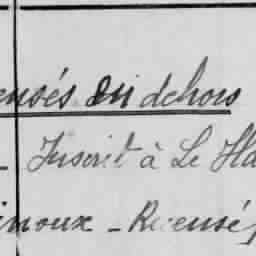 ensés au dehors
Inscrit à Le Ha
inoux - Recensé